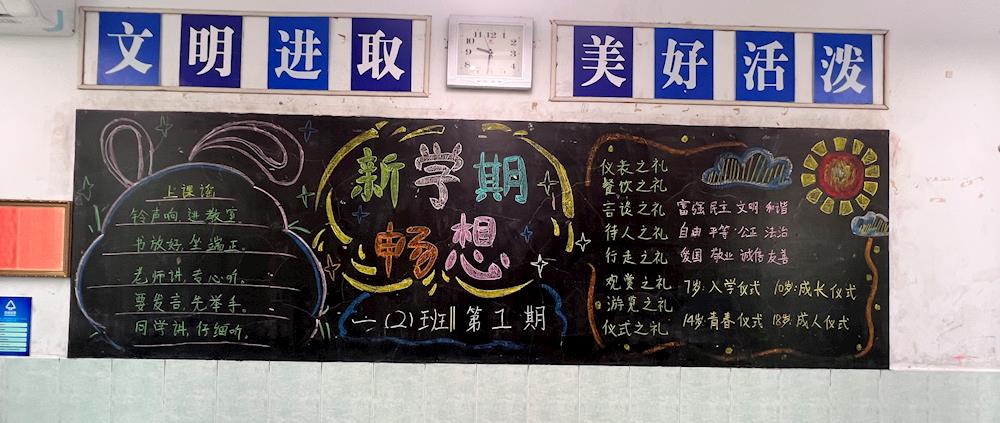 文明进取
美好活泼
上课谣
铃声响,进教室。
书放好,坐端正。
老师讲,专心听。
要发言,先举手。
同学讲,仔细听。
新学期
畅想
一(2)班 第1期
仪表之礼
餐饮之礼
言谈之礼
待人之礼
行走之礼
观赏之礼
游览之礼
仪式之礼
富强 民主 文明 和谐
自由 平等 公正 法治
爱国 敬业 诚信 友善
7岁:入学仪式 10岁:成长仪式
14岁:青春仪式 18岁:成人仪式